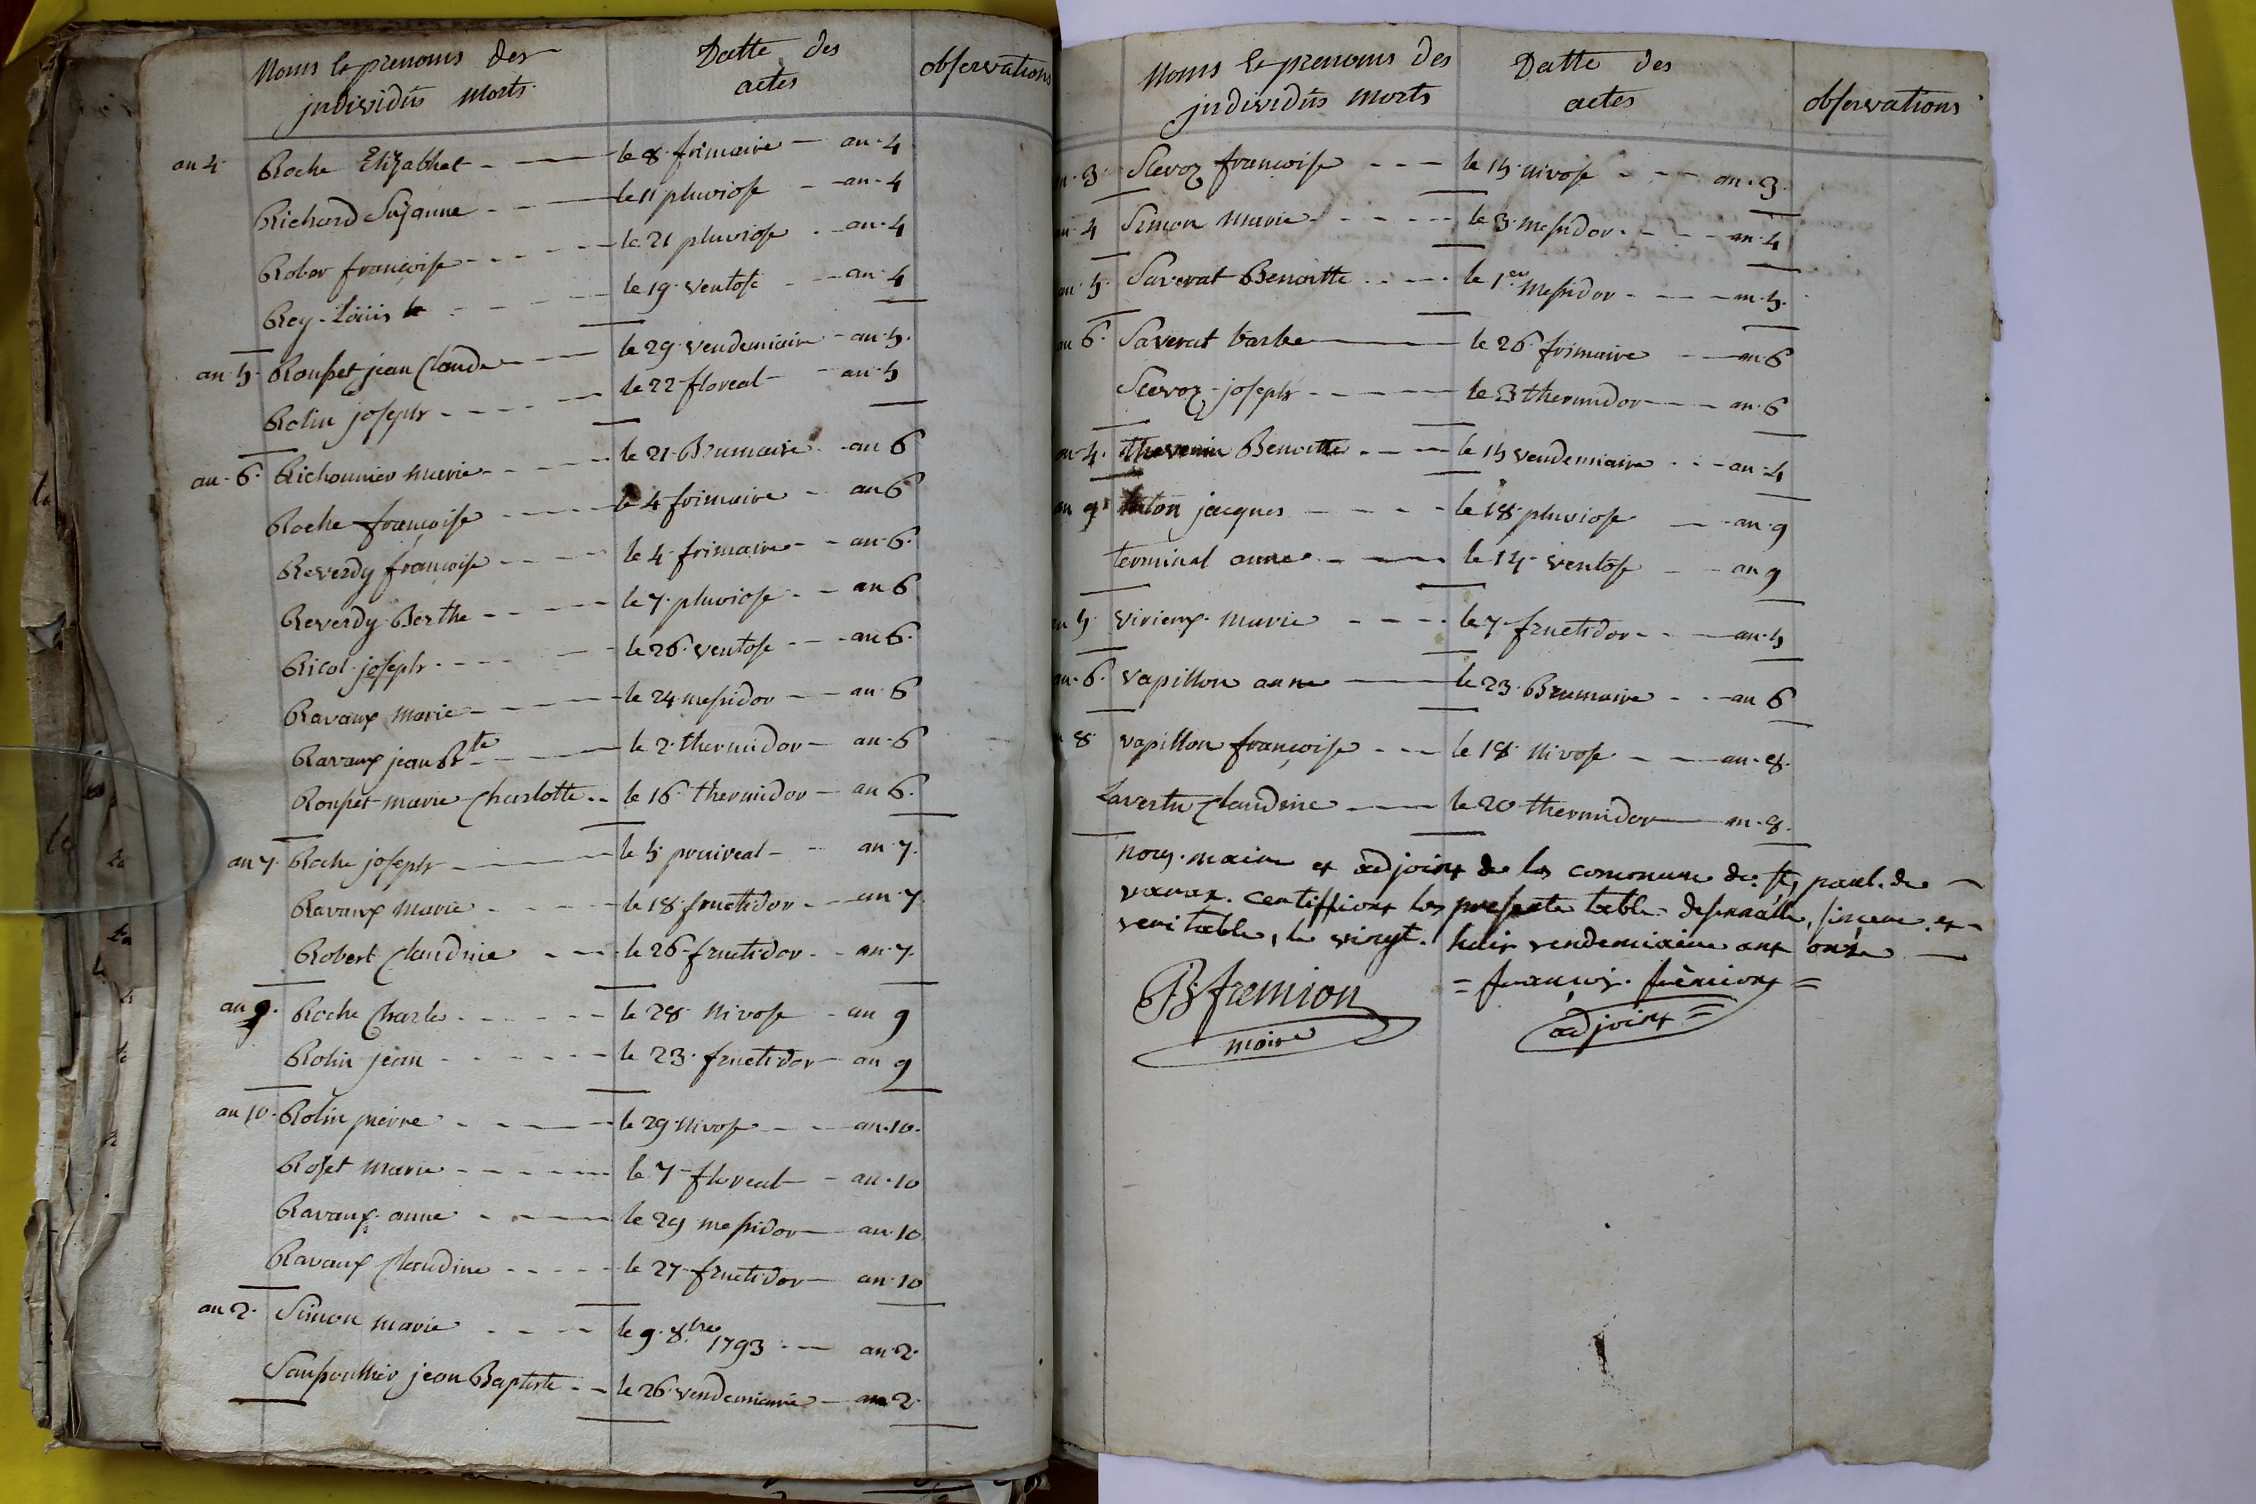 Noms & prenoms des
individus morts
Datte des
actes
observations
an 4 Roche Elizabhet le 8 frimaire an 4
Richard Suzanne le 11 pluviose an 4
Rober françoise le 21 pluviose an 4
Rey Loüis le 19 ventose an 4
an 5 Rousset jean Claude le 29 vendemiaire an 5
Rolin joseph le 22 floreal an 5
an 6 Richounier marie le 21 Brumaire an 6
Roche françoise le 4 frimaire an 6
Reverdy françoise le 4 frimaire an 6
Reverdy Berthe le 7 pluviose an 6
Ricol joseph le 26 ventose an 6
Ravaux marie le 24 messidor an 6
Ravaux jean Bte le 2 thermidor an 6
Rousset marie Charlotte le 16 thermidor an 6
an 7 Roche joseph le 5 praireal an 7
Ravaux marie le 18 fructidor an 7
Robert Claudine le 26 fructidor an 7
an 9 Roche Charle le 28 nivose an 9
Rolin jean le 23 fructidor an 9
an 10 Rolin pierre le 29 nivose an 10
Roset marie le 7 floreal an 10
Ravaux anne le 29 messidor an 10
Ravaux Claudine le 27 fructidor an 10
an 2 Simon marie le 9 8bre 1793 an 2
Saupoullier jean Baptiste le 26 vendemiaire an 2
Noms & prenoms des
individus morts
Datte des
actes
observations
an 3 Seevoz françoise le 15 nivose an 3
an 4 Simon marie le 3 messidor an 4
an 5 Saverat Benoitte le 1er messidor an 5
an 6 Saverat barbe le 26 frimaire an 6
Seevoz joseph le 3 thermidor an 6
an 4 thevenin Benoitte le 15 vendemiaire an 4
an 9 talon jacques le 18 pluviose an 9
terminal anne le 14 ventose an 9
an 5 virieux marie le 7 fructidor an 5
an 6 vapillon anne le 23 Brumaire an 6
an 8 vapillon françoise le 18 nivose an 8
Lavertu Claudine le 20 thermidor an 8
nous maire et adjoint de la commune de st paul de
varax certiffiont la presente table desennalle, sinçere et
veritable, le vingt huit vendemiaire ant onze
B fremion = françois frèmiont =
maire adjoint =